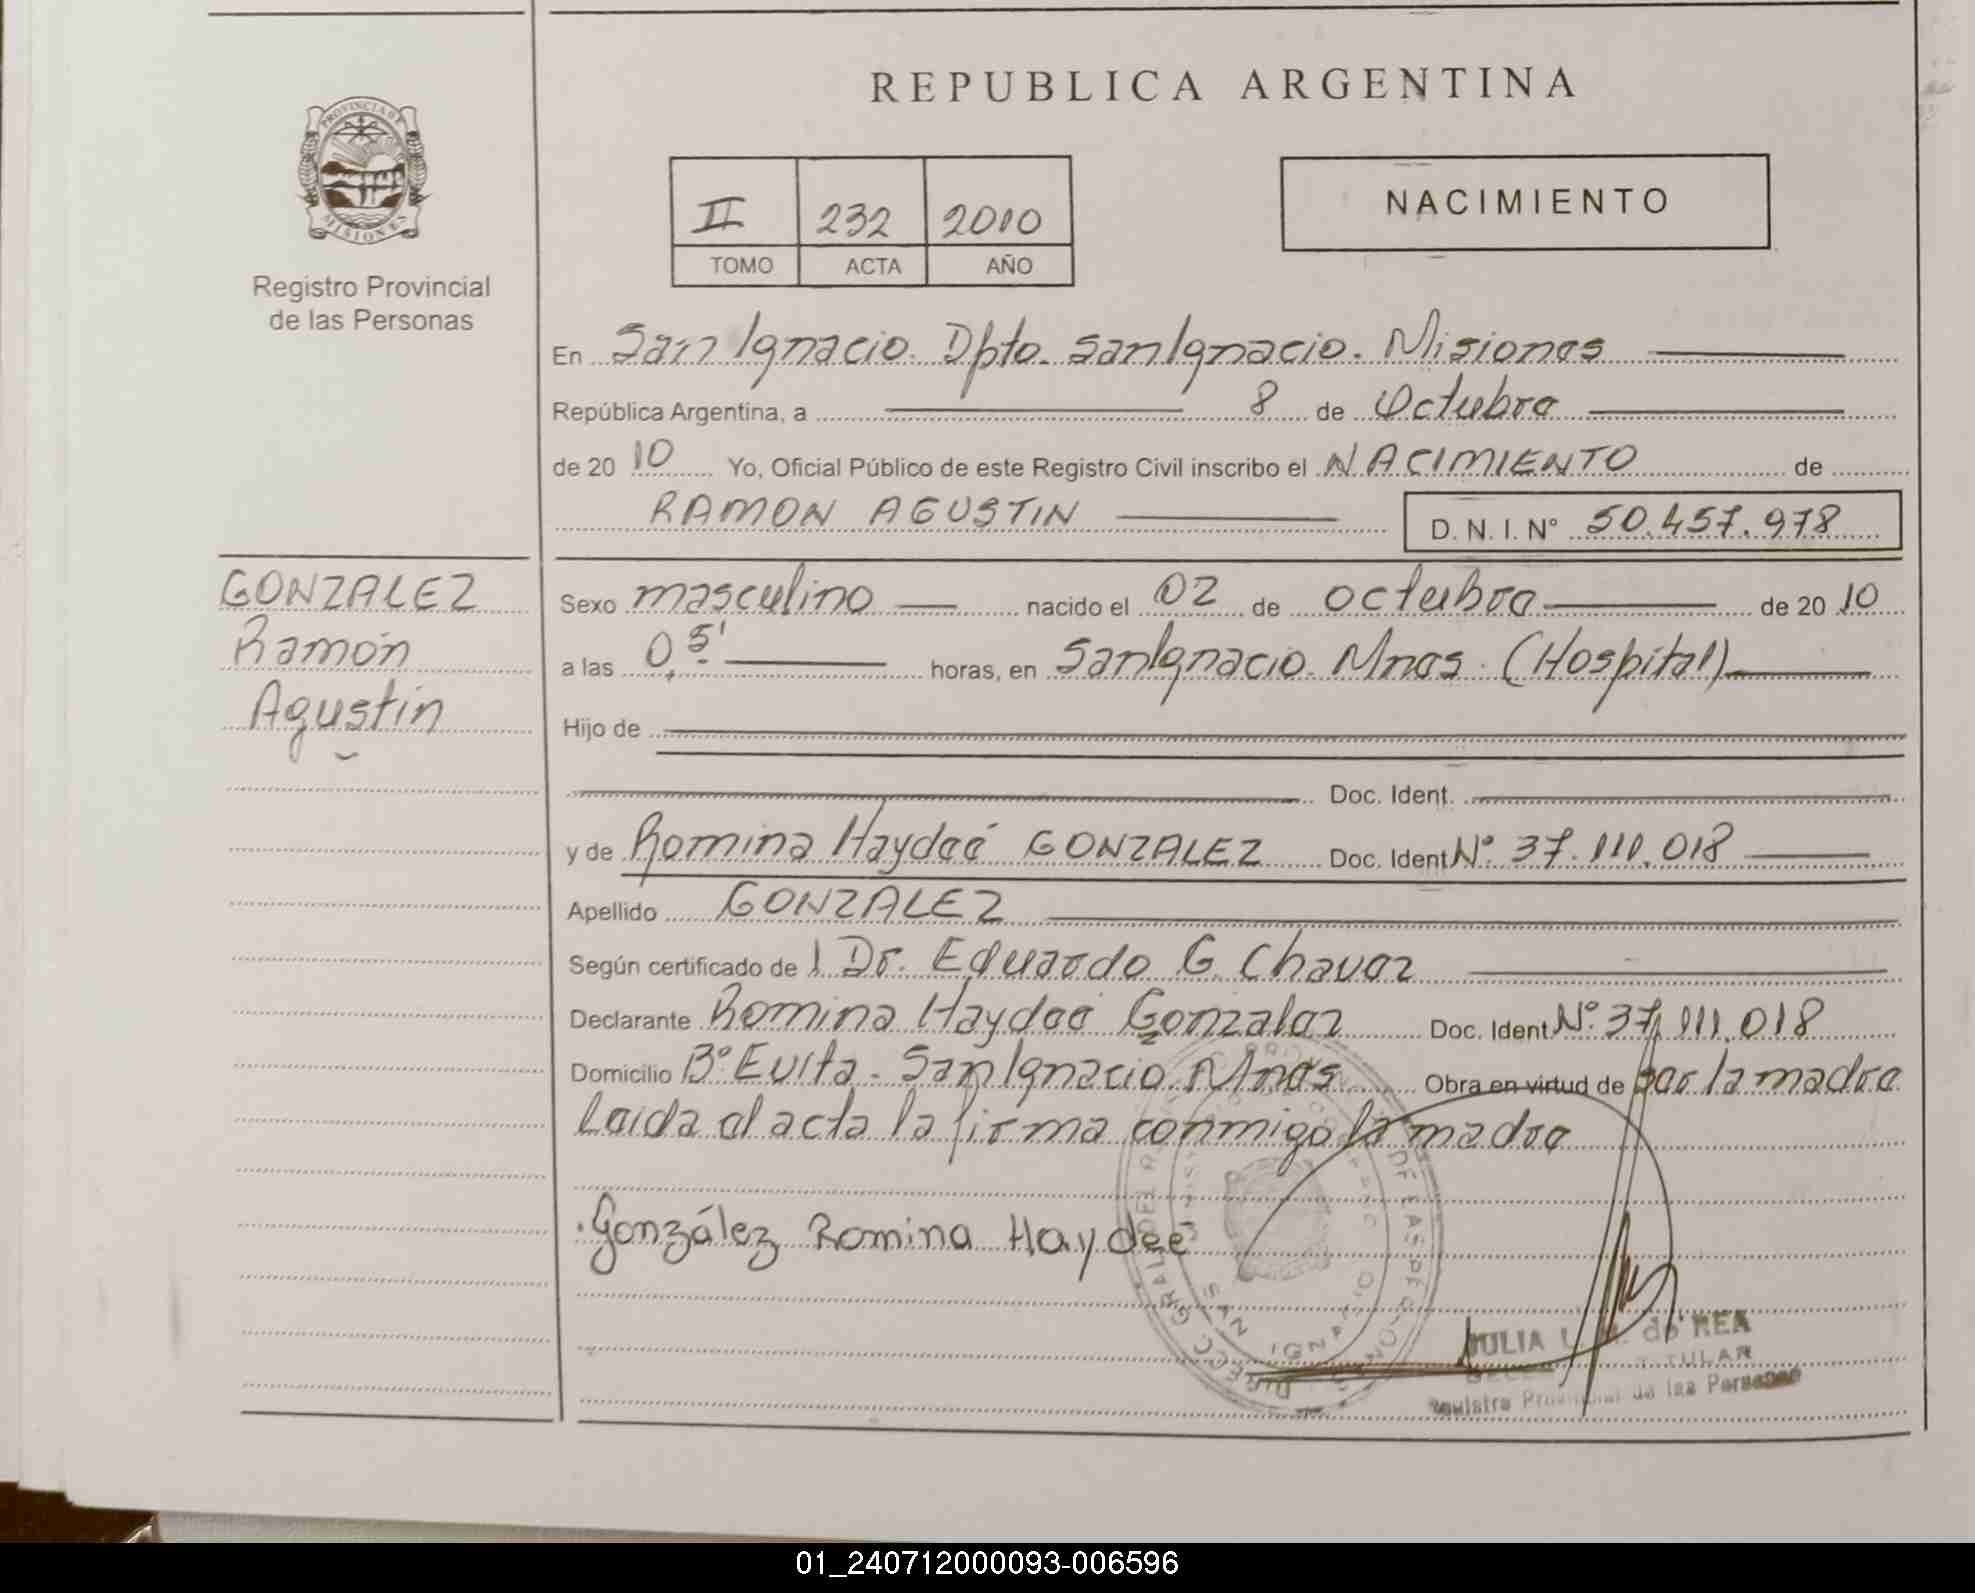 REPUBLICA ARGENTINA
PROVINCIA DE
MISIONES
Registro Provincial
de las Personas
II 232 2010
TOMO ACTA AÑO
NACIMIENTO
En San Ignacio. Dpto. San Ignacio. Misiones
República Argentina, a 8 de Octubre
de 20 10 Yo, Oficial Público de este Registro Civil inscribo el NACIMIENTO de
RAMON AGUSTIN D. N. I. N° 50.457.978
GONZALEZ
Ramón
Agustín
Sexo masculino nacido el 02 de octubre de 20 10
a las 0,5' horas, en San Ignacio. Mnes. (Hospital)
Hijo de
Doc. Ident.
y de Romina Haydeé GONZALEZ Doc. Ident. N° 37.111.018
Apellido GONZALEZ
Según certificado de l Dr. Eduardo G. Chavez
Declarante Romina Haydeé Gonzalez Doc. Ident. N° 37.111.018
Domicilio B° Evita - San Ignacio. Mnes Obra en virtud de por la madre
Leída el acta la firma conmigo la madre
González Romina Haydeé
JULIA L. de REA
TITULAR
Registro Provincial de las Personas
01_240712000093-006596